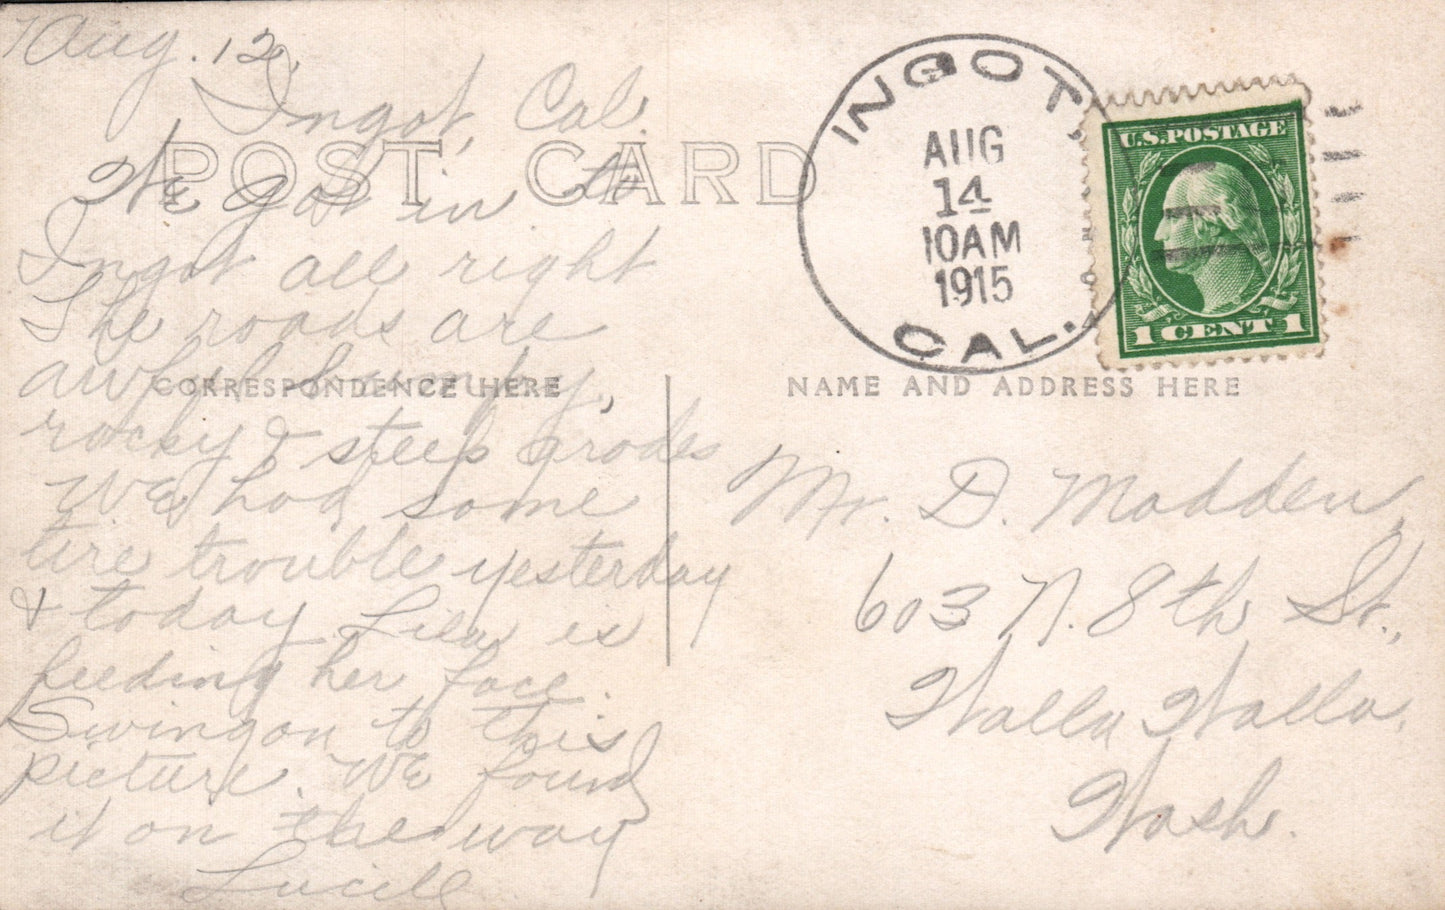 Aug. 12,
Ingot, Cal.
POST CARD
We got in to
Ingot all right
The roads are
awful bumpy,
CORRESPONDENCE HERE
rocky & steep grades
We had some
tire trouble yesterday
& today. Lila is
feeding her face.
Swing on to this
picture. We found
it on the way
Lucile
INGOT, CAL.
AUG
14
10AM
1915
U.S.POSTAGE
1 CENT 1
NAME AND ADDRESS HERE
Mr. D. Madden,
603 N. 8th St.,
Walla Walla,
Wash.